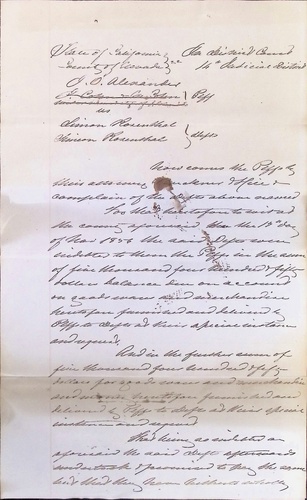 State of California
County of Nevada } ss
In District Court
14th Judicial District
J. O. Alexander
Plff
vs
Simon Rosenthal
Simon Rosenthal } defts
Now comes the Plffs by
their attorney &
complain of the defts above named
For that heretofore to wit at
the county aforesaid on the 1st day
of Nov 1856 the said Defts were
indebted to them the Plffs in the sum
of five thousand four hundred & fifty
dollars balance due on account
on goods wares and merchandise
heretofore furnished and delivered by
Plffs to defts at their special instance
and request.
And in the further sum of
five thousand four hundred & fifty
dollars for goods wares and merchandise
heretofore furnished and
delivered by Plffs to defts at their special
instance and request
That being so indebted as
aforesaid the said defts afterwards
undertook & promised to pay the same
but that they have